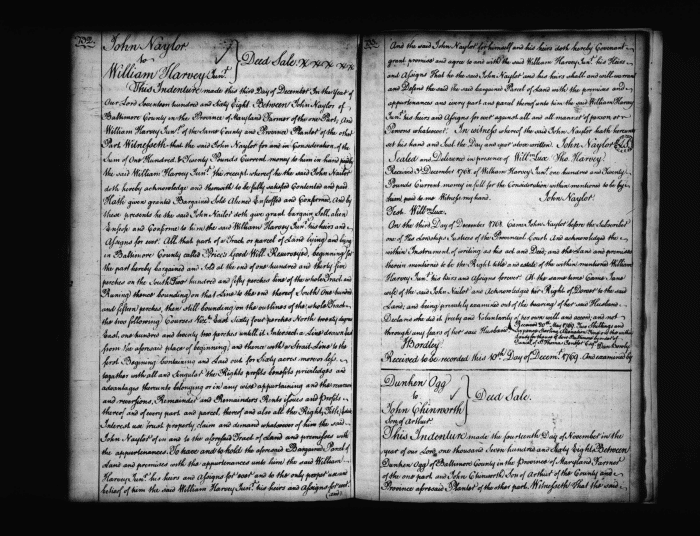 732
John Naylor
to
William Harvey Junr.
Deed Sale.
This Indenture made this third Day of December In the Year of
Our Lord Seventeen hundred and Sixty Eight Between John Naylor of
Baltimore County in the Province of Maryland Farmer of the one Part, And
William Harvey Junr. of the same County and Province Planter of the other
Part Witnesseth that the said John Naylor for and in Consideration of the
Sum of One Hundred & Twenty Pounds Current money to him in hand paid by
the said William Harvey Junr. the receipt whereof he the said John Naylor
doth hereby acknowledge and themwith to be fully satisfied Contented and paid
Hath given granted Bargained Sold Aliened Enfeoffed and Confirmed, And by
these presents he the said John Naylor doth give grant bargain Sell, alien
Enfeoff and Confirm to him the said William Harvey Junr. his heirs and
Assigns for ever All that part of a Tract or parcel of Land lying and being
in Baltimore County called Price's Good Will Resurveyed, beginning for
the part hereby bargained and Sold at the end of one hundred and thirty five
perches on the South Two hundred and fifty perches line of the whole Tract and
Running thence bounding on that Line to the end thereof South One hundred
and fifteen perches, then still bounding on the outlines of the whole Tract
the two following Courses Vizt. East Sixty four perches North twenty degrees
East, one hundred and twenty two perches until it Intersects a Line drawn East
from the aforesaid place of beginning, and thence with a strait Line to the
first Beginning Containing and Laid out for Sixty acres more or less
together with all and Singular the Rights profits benefits priviledges and
advantages thereunto belonging or in any wise appertaining and the reversion
and reversions, Remainder and Remainders Rents issues and profits
thereof and of every part and parcel, thereof and also all the Right, Title,
Interest use Trust property claim and demand whatsoever of him the said
John Naylor of in and to the aforesaid Tract of Land and premisses with
the appurtenances. To have and to hold the aforesaid Bargained Parcel of
Land and premises with the appurtenances unto him the said William
Harvey Junr. his heirs and Assigns for ever and to the only proper use and
behoof of him the said William Harvey Junr. his heirs and Assigns for ever.
(and)
And the said John Naylor for himself and his heirs doth hereby Covenant
grant promise and agree to and with the said William Harvey Junr. his Heirs
and Assigns That he the said John Naylor and his heirs shall and will warrant
and Defend the said the said bargained Parcel of Land with the premises and
appurtenances and every part and parcel thereof unto him the said William Harvey
Junr. his heirs and Assigns for ever against all and all manner of person or
Persons whatsoever. In witness whereof the said John Naylor hath hereunto
set his hand and Seal the Day and Year above written John Naylor
Sealed and Delivered in presence of Willm. Lux Tho. Harvey
Received 3d December 1768 of William Harvey Junr. one hundred and Twenty
Pounds Current money in full for the Consideration within mentioned to be by
them paid to me Witness my hand. John Naylor
Test. Willm. Lux.
On the third Day of December 1768 Came John Naylor before the Subscriber
one of His Lordships Justices of the Provincial Court And acknowledged the
within Instrument of writing as his act and Deed; and the Land and premises
therein mentioned to be the Right title and estate of the within mentioned William
Harvey Junr. his heirs and Assigns forever. At the same time Came Jane
wife of the said John Naylor and Acknowledged her Right of Dower to the said
Land, and being privately examined out of the hearing of her said Husband
Declares she did it freely and Voluntarily of her own will and accord, and not
through any fears of her said Husband
J Bordley
Received to be recorded this 10th. Day of Decemr. 1769. And examined by
Dunken Ogg
to
John Chinworth
Son of Arthur
Deed Sale.
This Indenture made the fourteenth Day of November in the
year of our Lord one thousand Seven Hundred and Sixty Eight Between
Dunken Ogg of Baltimore County in the province of Maryland, Farmer
of the one part and John Chinworth Son of Arthur of the County and
Province aforesaid Planter of the other part. Witnesseth That the said